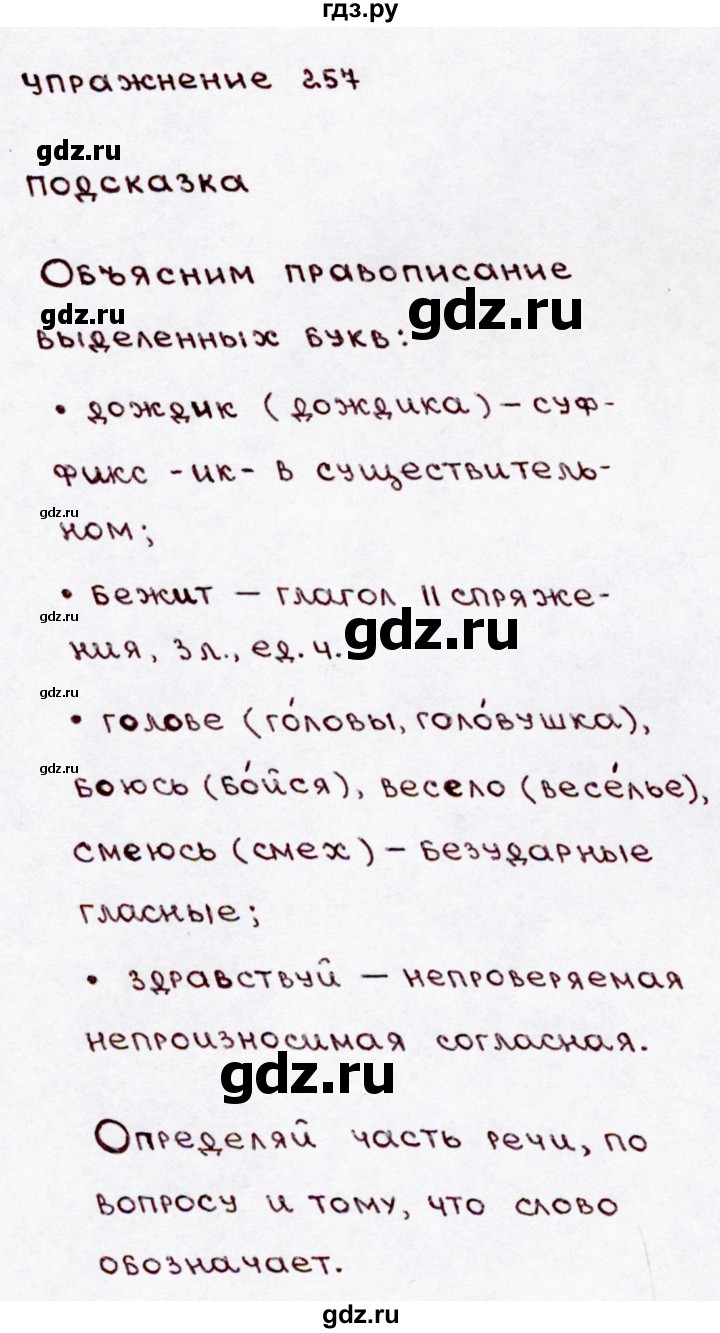 гдз.ру
упражнение 257
gdz.ru
подсказка
Объясним правописание
gdz.ru
gdz.ru
выделенных букв:
• дождик (дождика) – суф-
фикс -ик- в существитель-
gdz.ru
ном;
• бежит – глагол II спряже-
gdz.ru
ния, 3 л., ед. ч.
gdz.ru
gdz.ru
• голове (го́ловы, голо́вушка),
gdz.ru
боюсь (бо́йся), весело (весе́лье),
смеюсь (смех) – безударные
гласные;
• здравствуй – непроверяемая
непроизносимая согласная.
gdz.ru
Определяй часть речи, по
вопросу и тому, что слово
обозначает.
gdz.ru